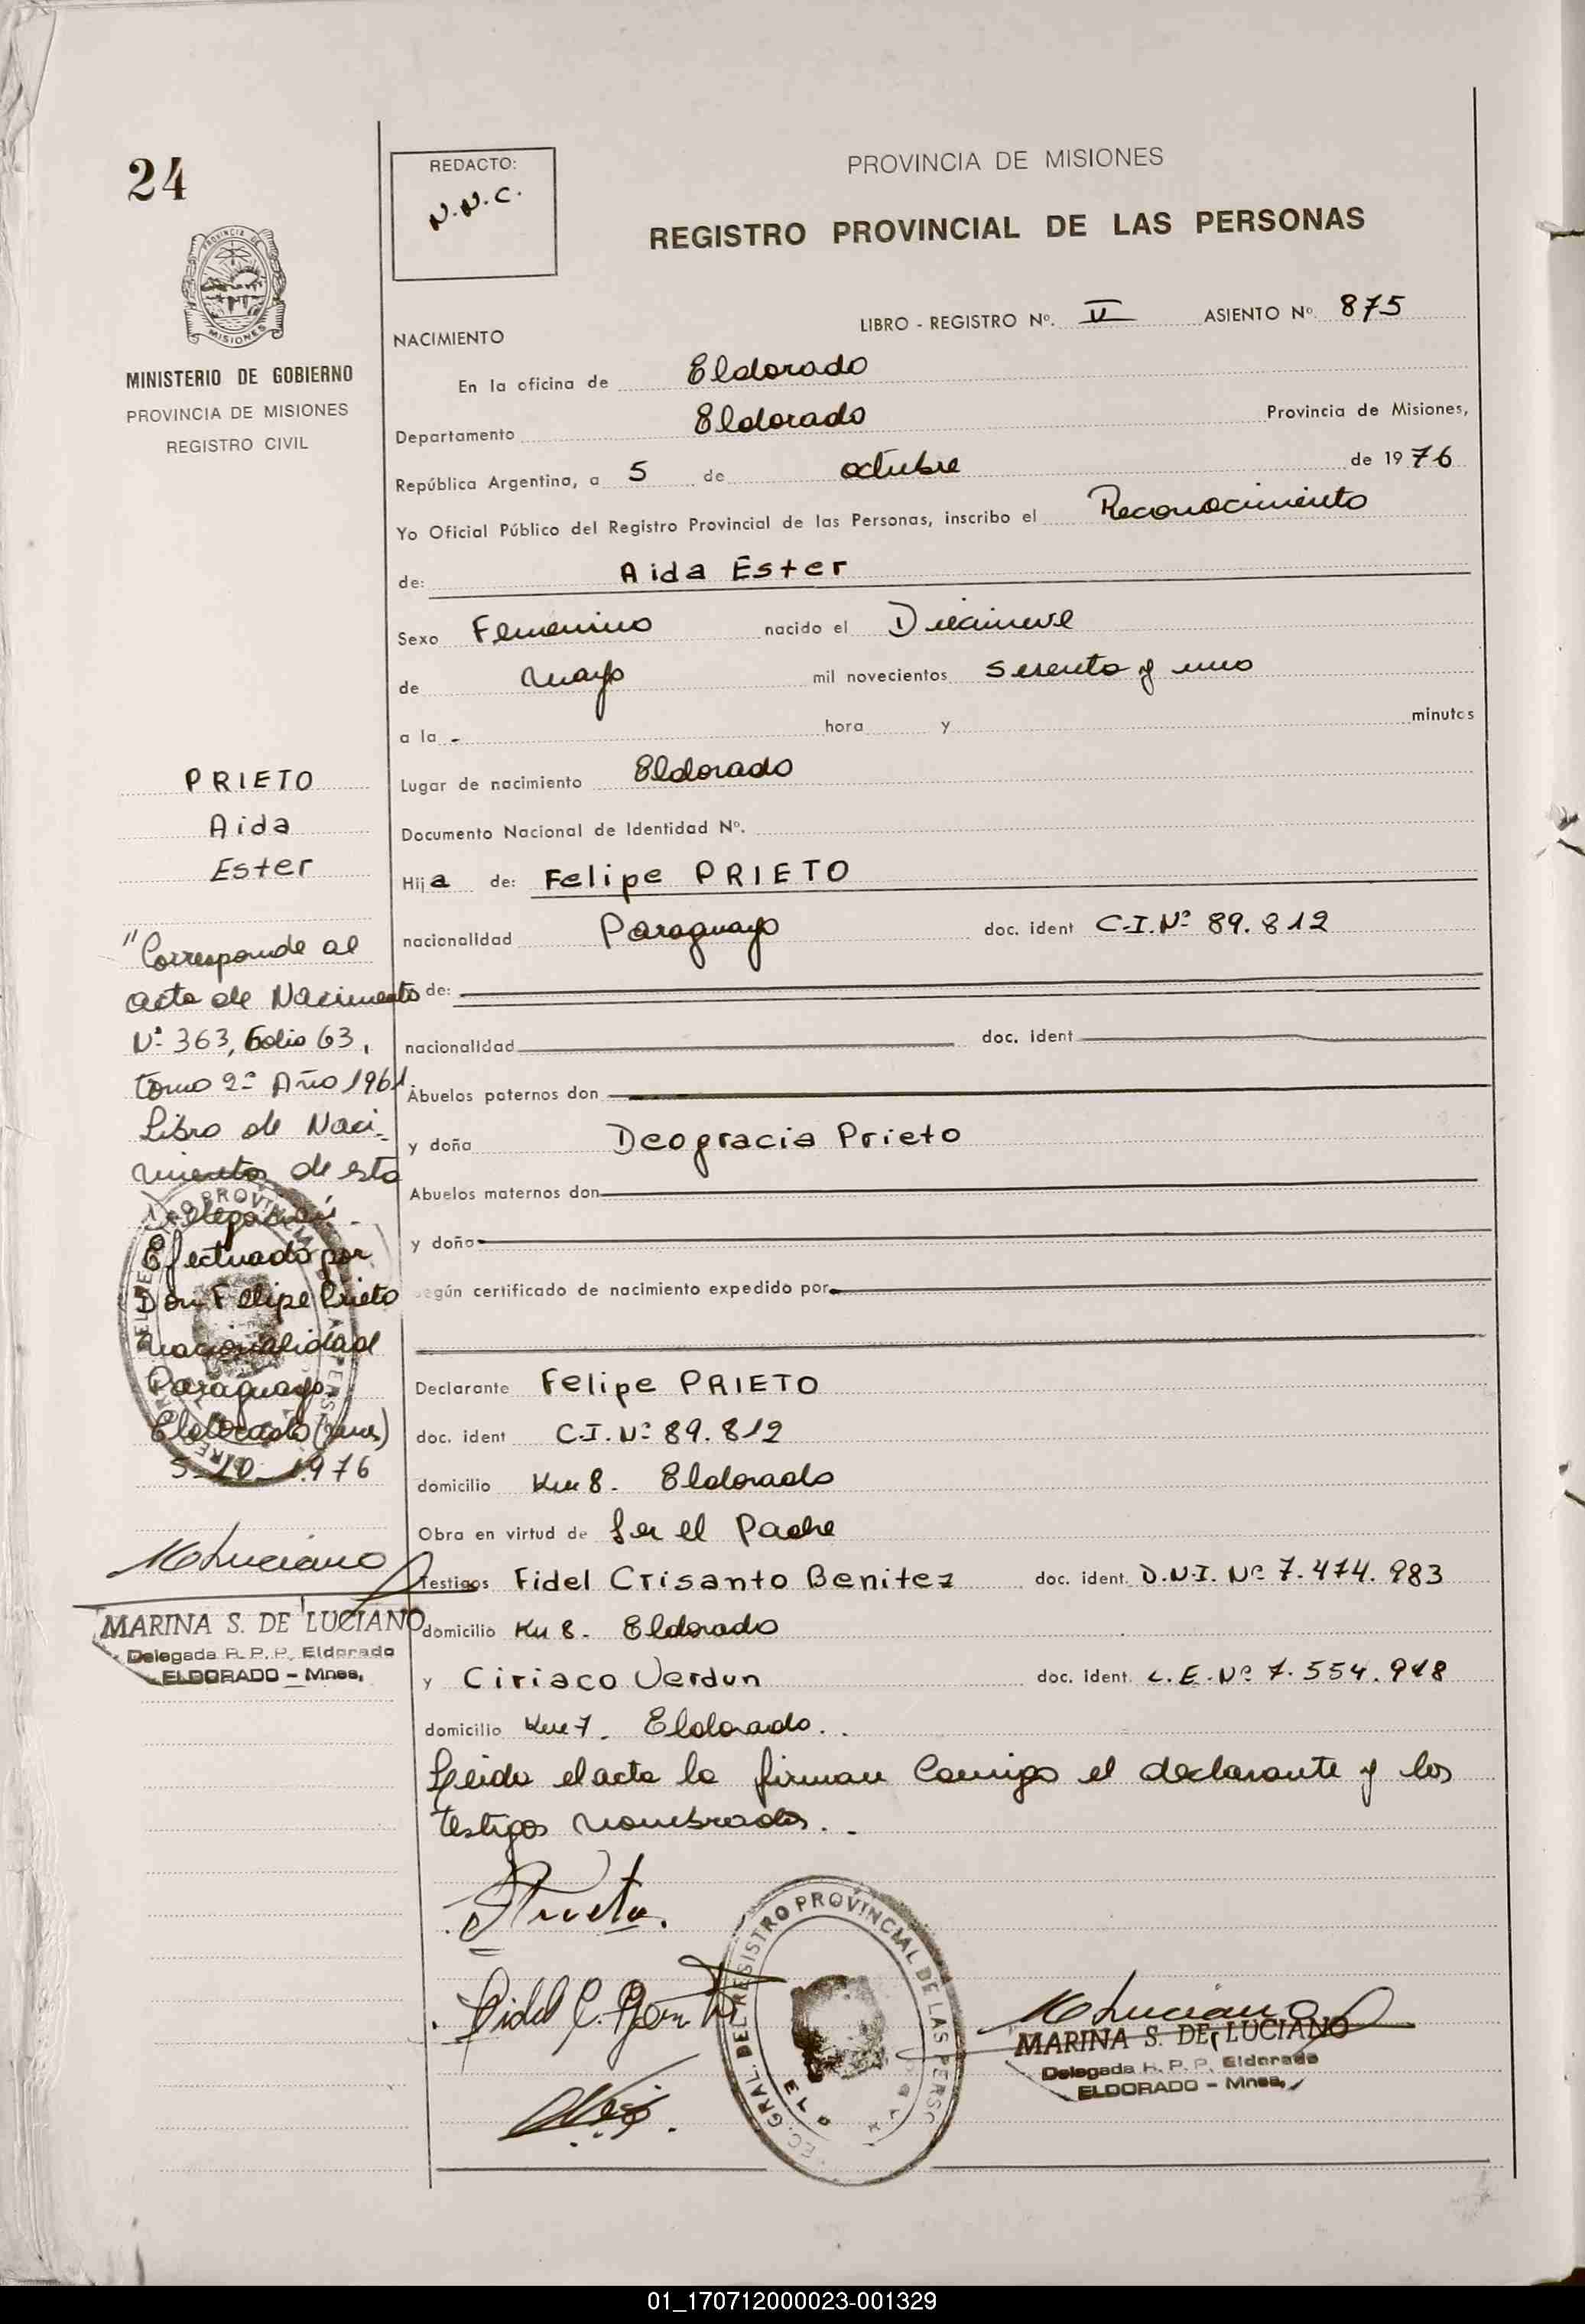 24
REDACTO:
N.N.C.
PROVINCIA DE MISIONES
REGISTRO PROVINCIAL DE LAS PERSONAS
PROVINCIA DE
MISIONES
MINISTERIO DE GOBIERNO
PROVINCIA DE MISIONES
REGISTRO CIVIL
NACIMIENTO
LIBRO - REGISTRO Nº. II ASIENTO Nº 875
En la oficina de Eldorado
Departamento Eldorado Provincia de Misiones,
República Argentina, a 5 de octubre de 1976
Yo Oficial Público del Registro Provincial de las Personas, inscribo el Reconocimiento
de: Aida Ester
Sexo Femenino nacido el Diecinueve
de mayo mil novecientos sesenta y uno
a la - hora y minutos
Lugar de nacimiento Eldorado
Documento Nacional de Identidad Nº.
Hija de: Felipe PRIETO
nacionalidad Paraguayo doc. ident C.I.Nº 89.812
de:
nacionalidad doc. ident
Abuelos paternos don
y doña Deogracia Prieto
Abuelos maternos don
y doña
según certificado de nacimiento expedido por
Declarante Felipe PRIETO
doc. ident C.I.Nº 89.812
domicilio Km 8. Eldorado
Obra en virtud de Ser el Padre
Testigos Fidel Crisanto Benitez doc. ident. D.N.I. Nº 7.474.983
domicilio Km 8. Eldorado
y Ciriaco Verdun doc. ident. L.E.Nº 7.554.918
domicilio Km 7. Eldorado..
Leida el acta la firman Conmigo el declarante y los
testigos nombrados..-
PRIETO
Aida
Ester
"Corresponde al
acta de Nacimiento
Nº 363, Folio 63,
Tomo 2º Año 1961
Libro de Naci-
mientos de esta
Delegación.
Efectuado por
Don Felipe Prieto
nacionalidad
Paraguayo.
Eldorado (Mnes)
5-10-1976
MLuciano
MARINA S. DE LUCIANO
Delegada R. P. P. Eldorado
ELDORADO - Mnes,
F Prieto.
Fidel C. Benitez
GRAL. DEL REGISTRO PROVINCIAL DE LAS PERSO
MLuciano
MARINA S. DE LUCIANO
Delegada R. P. P. Eldorado
ELDORADO - Mnes,
01_170712000023-001329